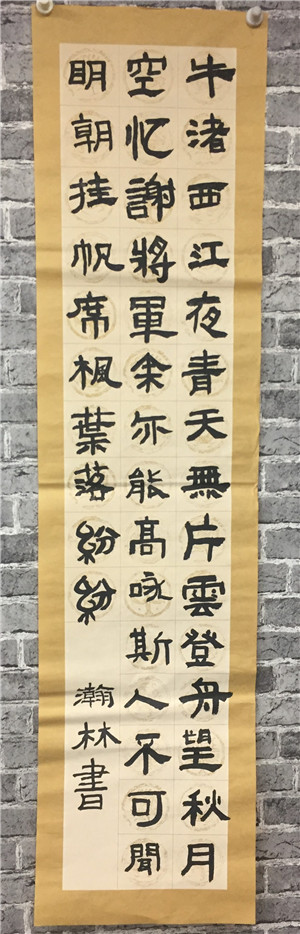 牛渚西江夜青天無片雲登舟望秋月
空忆謝將軍余亦能高咏斯人不可聞
明朝挂帆席楓葉落紛紛
瀚林書